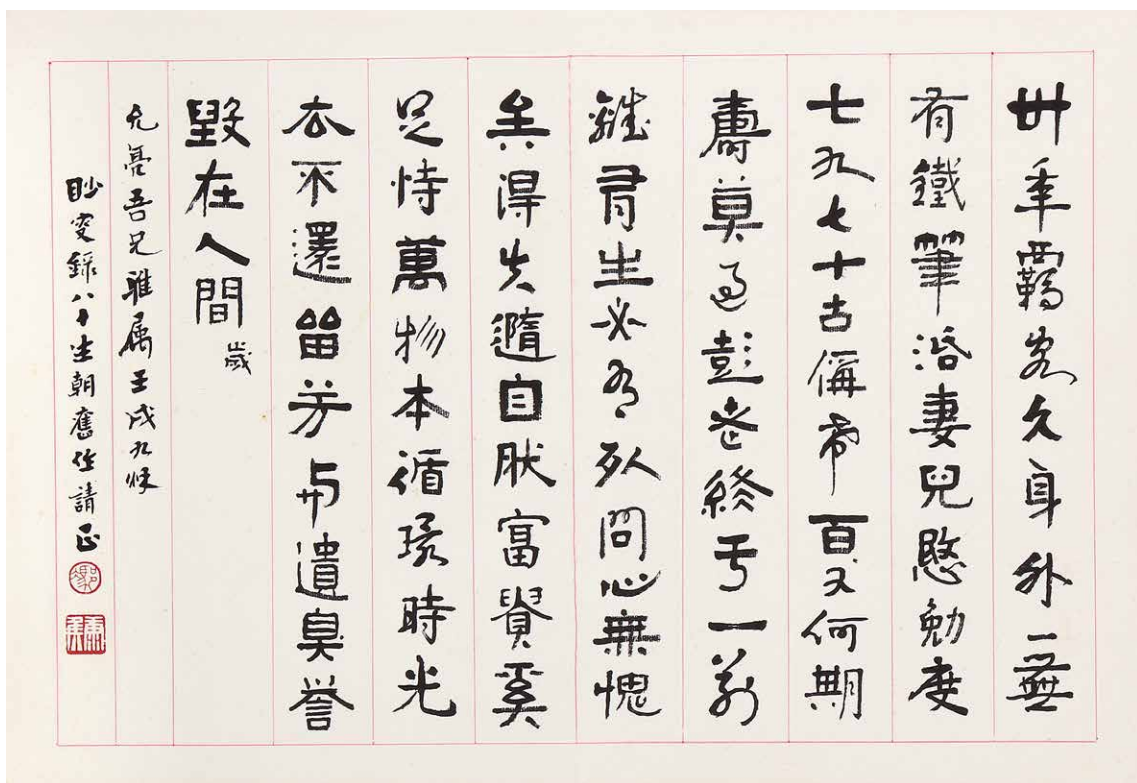 卅年羈客久身外一無
有鐵筆活妻兒愍勉度
七九七十古稱希百又何期
壽莫過彭老終亏一别
離有生必有死問心無愧
矣得失隨自然富貴奚
足恃萬物本循環時光
去不還留芳与遺臭誉
毀在人間 歲
元亮吾兄雅属壬戌九秌
眇叟錄八十生朝舊作請正